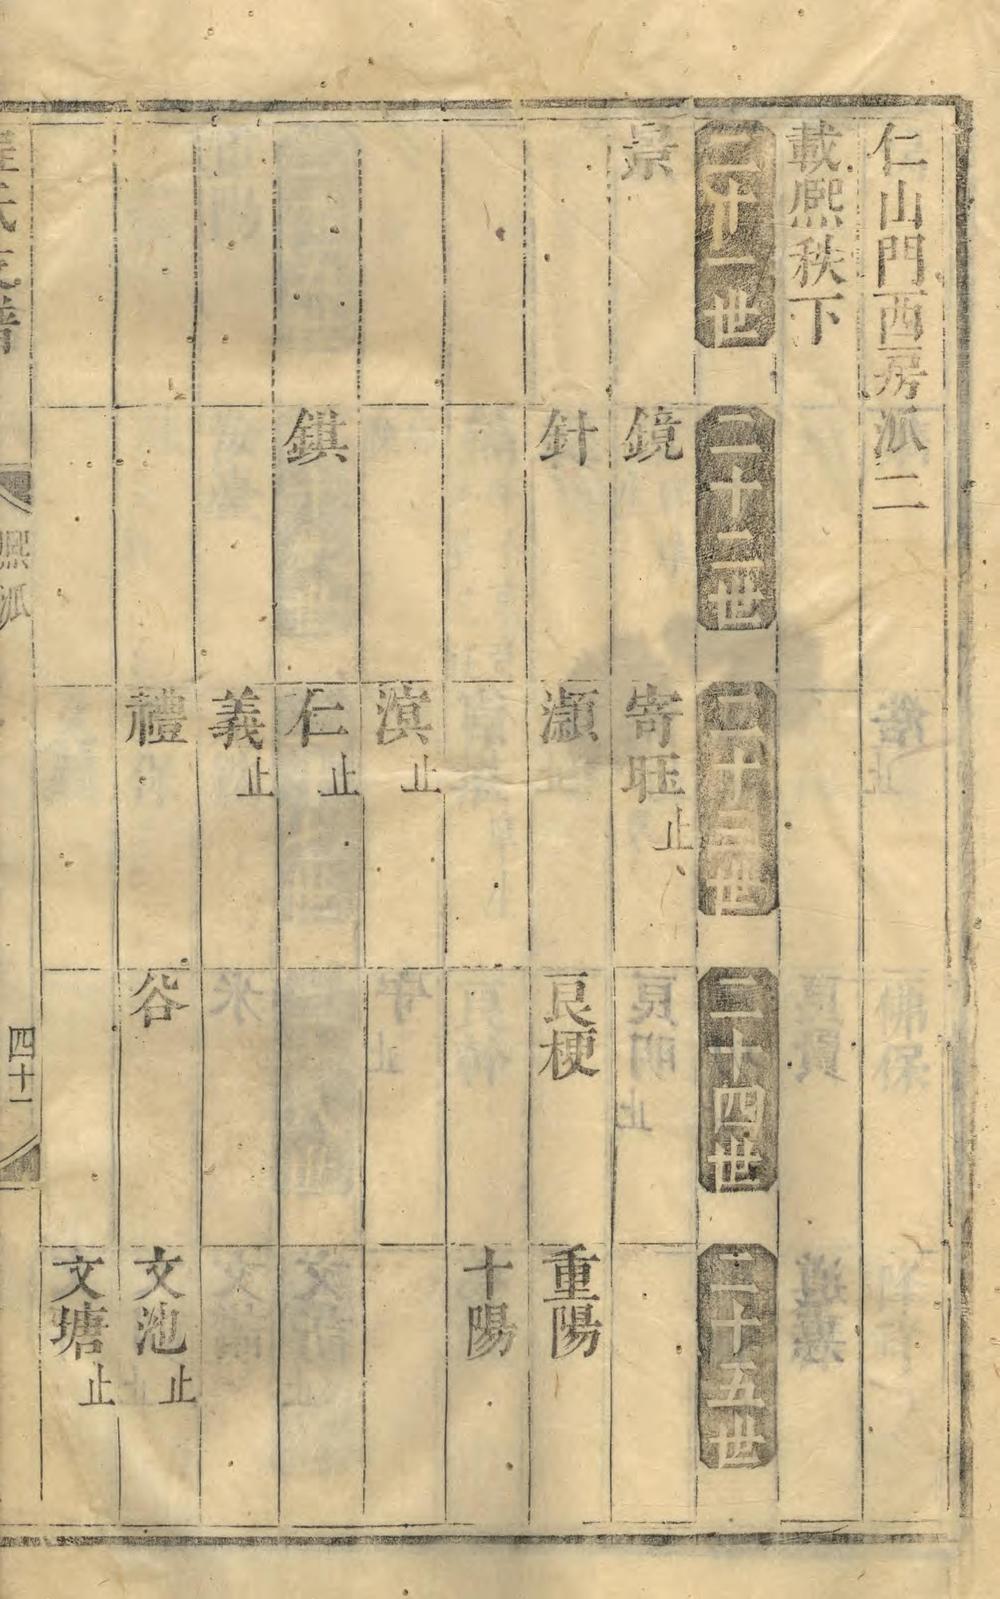 仁山門西房派二
載熈秩下
二十一世
二十二世
二十三世
二十四世
二十五世
景
鏡
寄旺止
針
灝
良梗
重陽
十陽
滇止
鉷
仁止
義止
禮
谷
文池止
文塘止
氏
譜
熈派
四十一